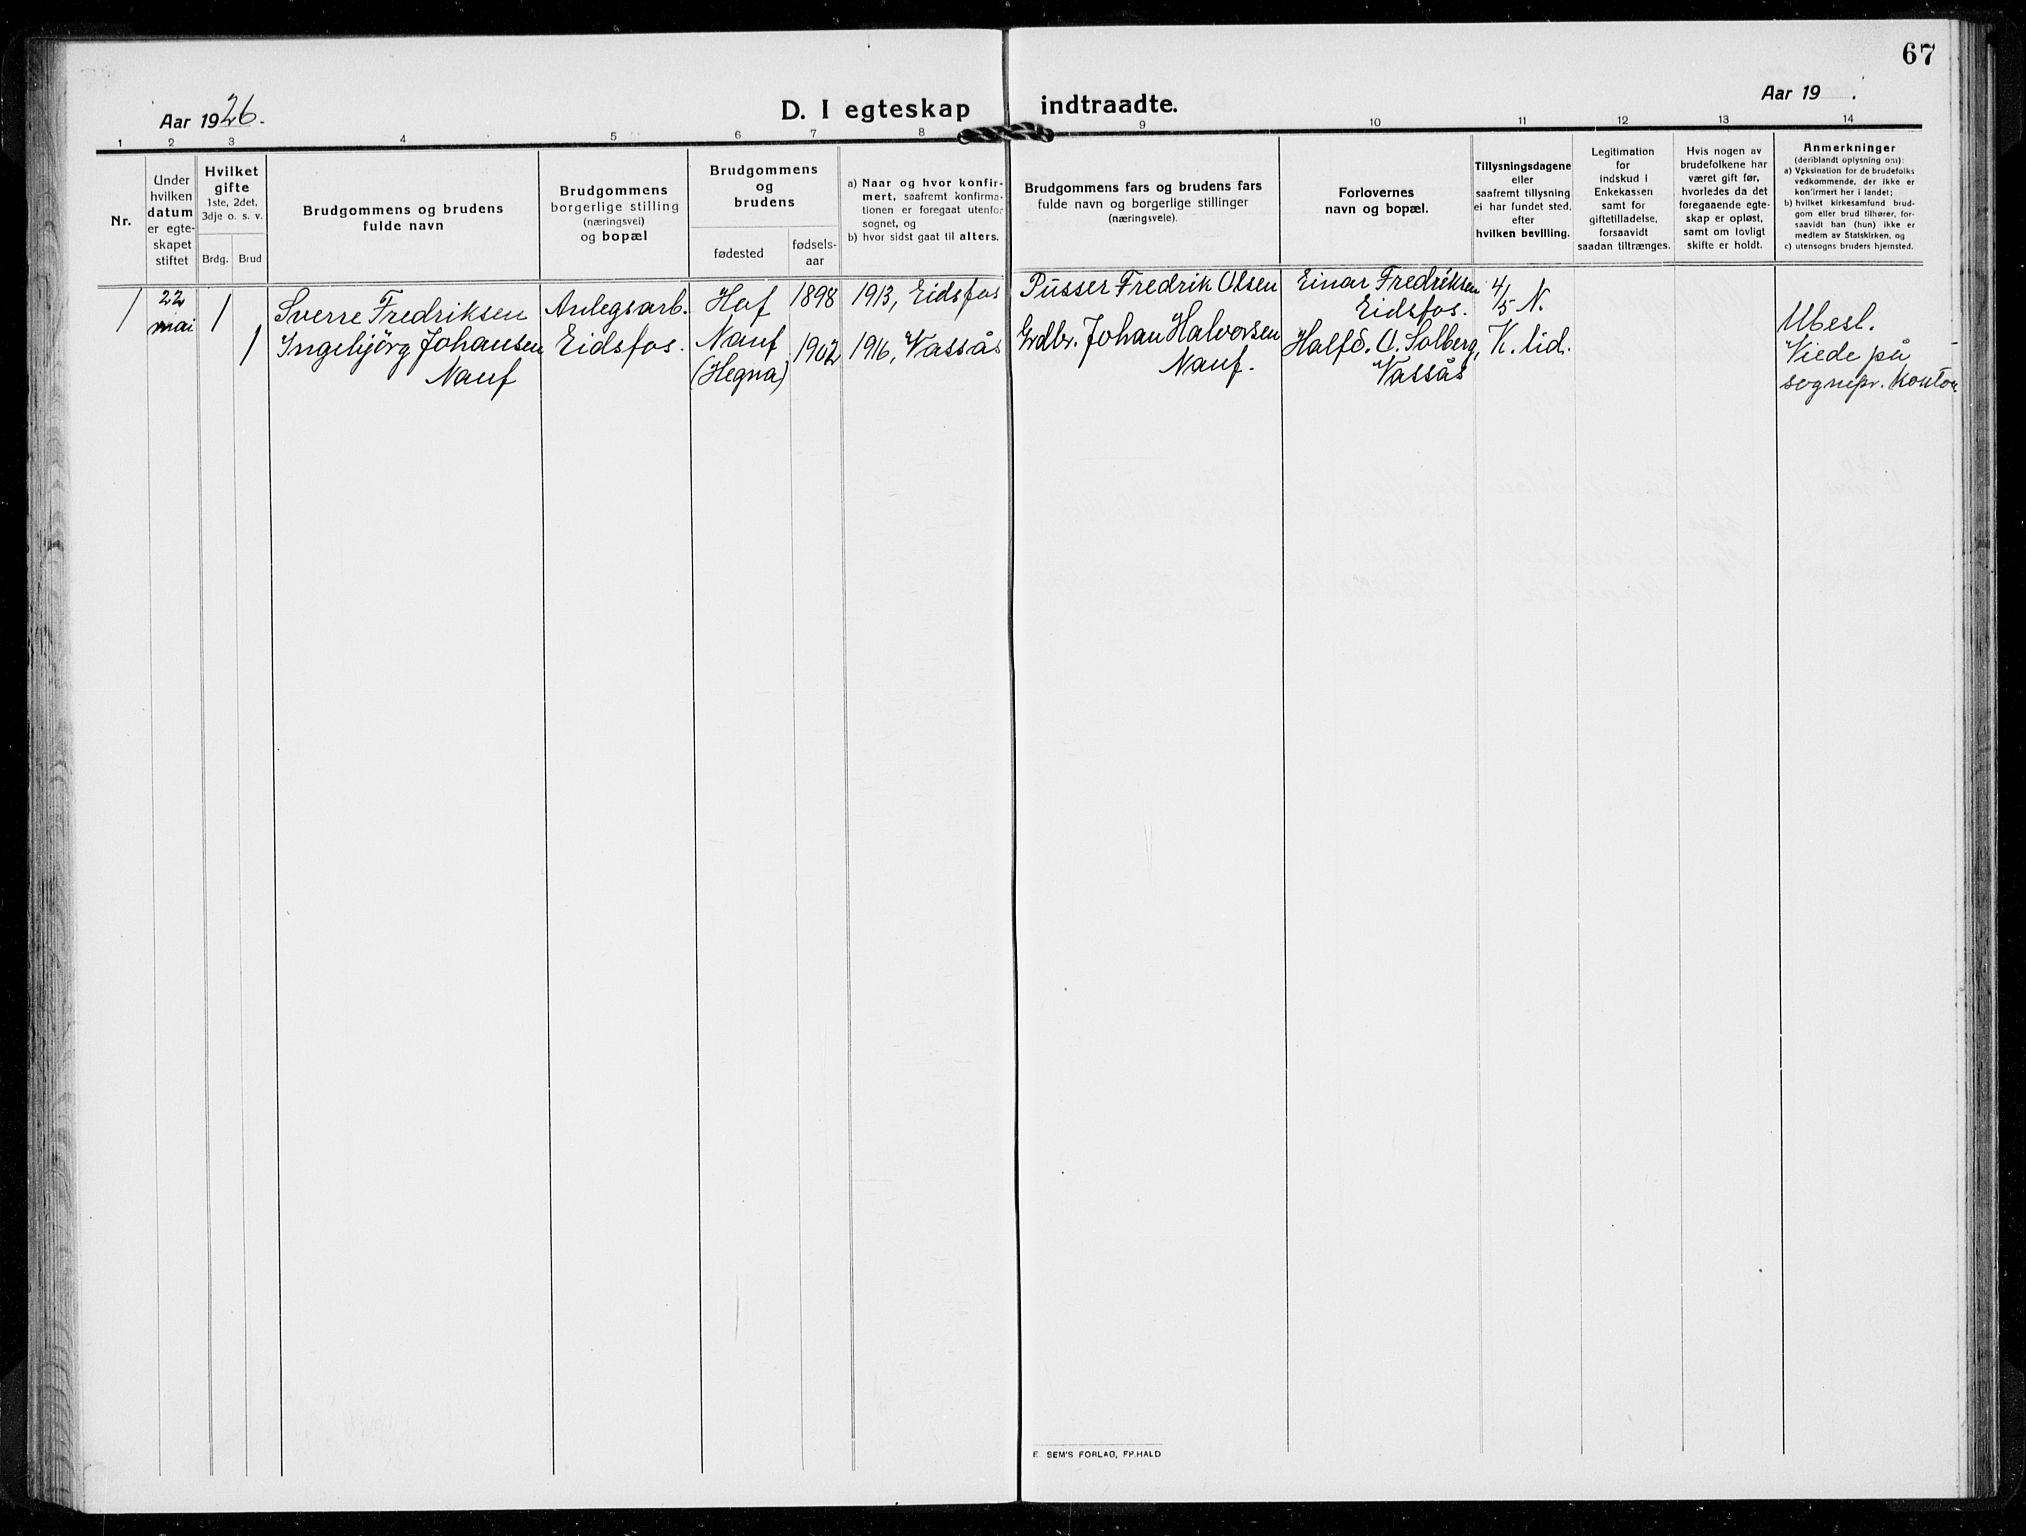 67
Aar 1926.
D. I egteskap indtraadte.
Aar 19 .
1 2 3 4 5 6 7 8 9 10 11 12 13 14
Nr.
Under
hvilken
datum
er egte-
skapet
stiftet
Hvilket
gifte
1ste, 2det,
3dje o. s. v.
Brdg. Brud
Brudgommens og brudens
fulde navn
Brudgommens
borgerlige stilling
(næringsvei)
og bopæl
Brudgommens
og
brudens
fødested
fødsels-
aar
a) Naar og hvor konfir-
mert, saafremt konfirma-
tionen er foregaat utenfor
sognet, og
b) hvor sidst gaat til alters.
Brudgommens fars og brudens fars
fulde navn og borgerlige stillinger
(næringsveie).
Forlovernes
navn og bopæl.
Tillysningsdagene
eller
saafremt tillysning
ei har fundet sted,
efter
hvilken bevilling.
Legitimation
for
indskud i
Enkekassen
samt for
giftetilladelse,
forsaavidt
saadan tiltrænges.
Hvis nogen av
brudefolkene har
været gift før,
hvorledes da det
foregaaende egte-
skap er opløst,
samt om lovligt
skifte er holdt.
Anmerkninger
(deriblandt oplysning om):
a) Vaksination for de brudefolks
vedkommende, der ikke er
konfirmert her i landet;
b) hvilket kirkesamfund brud-
gom eller brud tilhører, for-
saavidt han (hun) ikke er
medlem av Statskirken, og
c) utensogns bruders hjemsted.
1 22 mai 1 Sverre Fredriksen Anlegsarb. Hof 1898 1913, Eidsfos Pusser Fredrik Olsen Einar Fredriksen 4/5 N.
Eidsfos.
1 Ingebjörg Johansen Eidsfos. Nauf 1902 1916, Vassås Grdbr. Johan Halvorsen Halfd. O. Solberg, K. tid.
Nauf (Hegna) Nauf. Vassås
Ubesl.
Viede på
sognepr. kontor
E. SEM'S FORLAG, FR.HALD